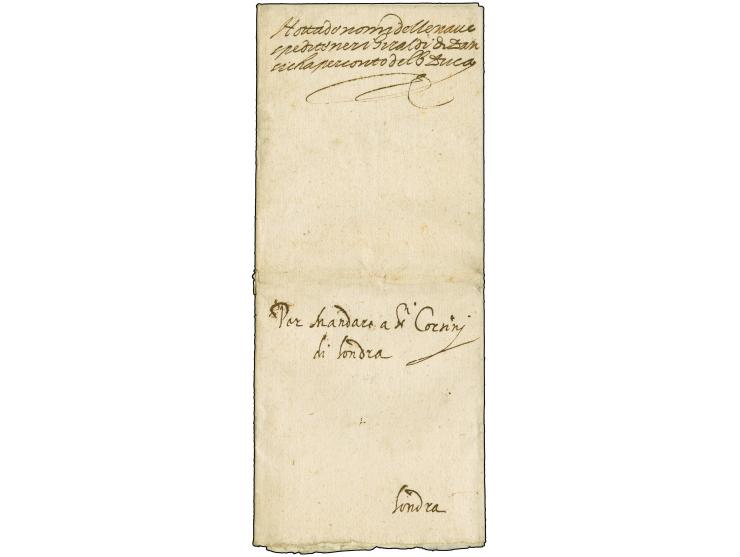 Notta de nomi delle nave
spedite neri Giraldi di Dan
zicha per conto del G Duca
Per Mandare a Sri Corsinj
di londra
londra